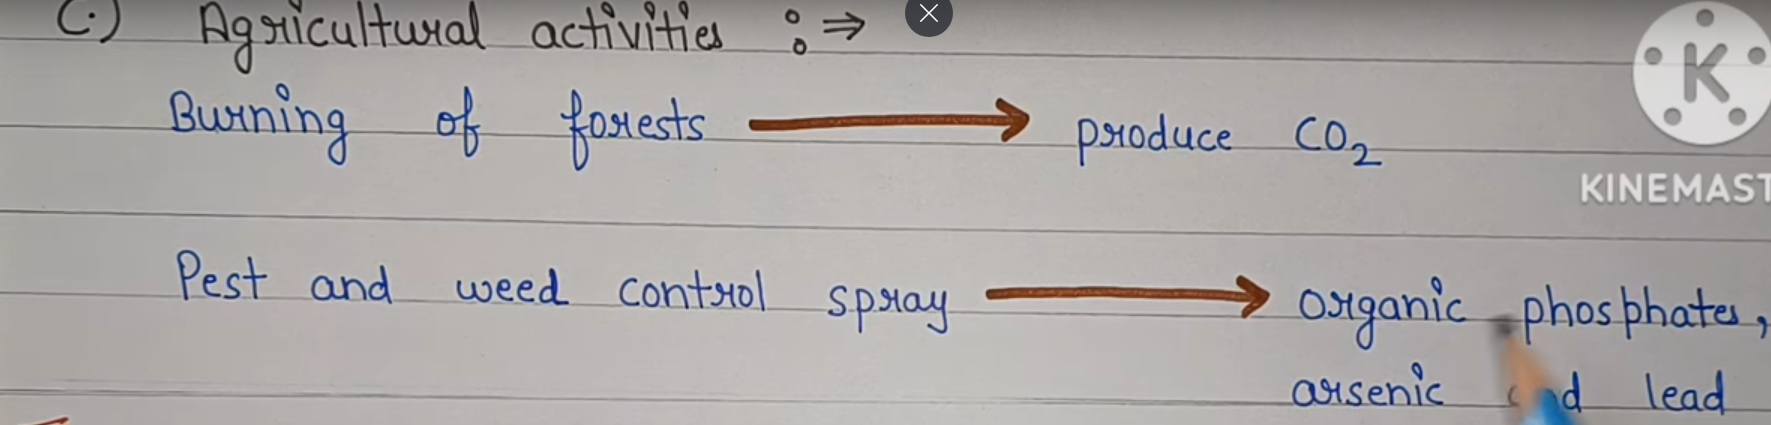 C.) Agricultural activities :⇒
Burning of forests → produce CO₂
Pest and weed control spray → organic phosphates,
arsenic and lead
K
KINEMAST